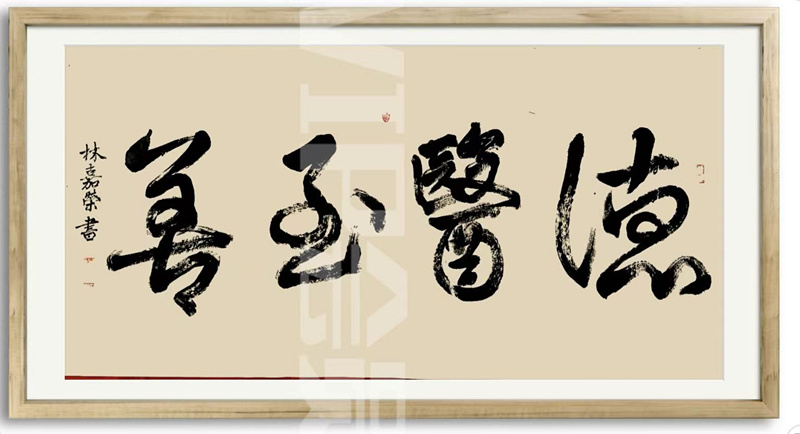 德醫至善
林嘉榮書